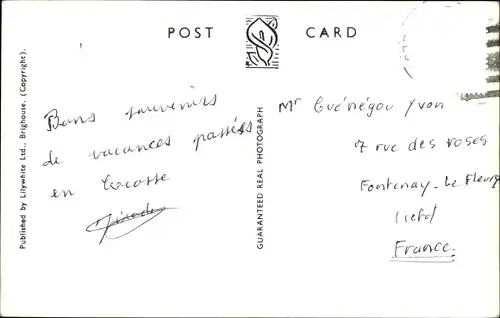 POST CARD
Published by Lilywhite Ltd., Brighouse. (Copyright).
GUARANTEED REAL PHOTOGRAPH
Bons souvenirs
de vacances passées
en Ecosse
Mr Guénégou Yvon
7 rue des roses
Fontenay-Le Fleury
France.